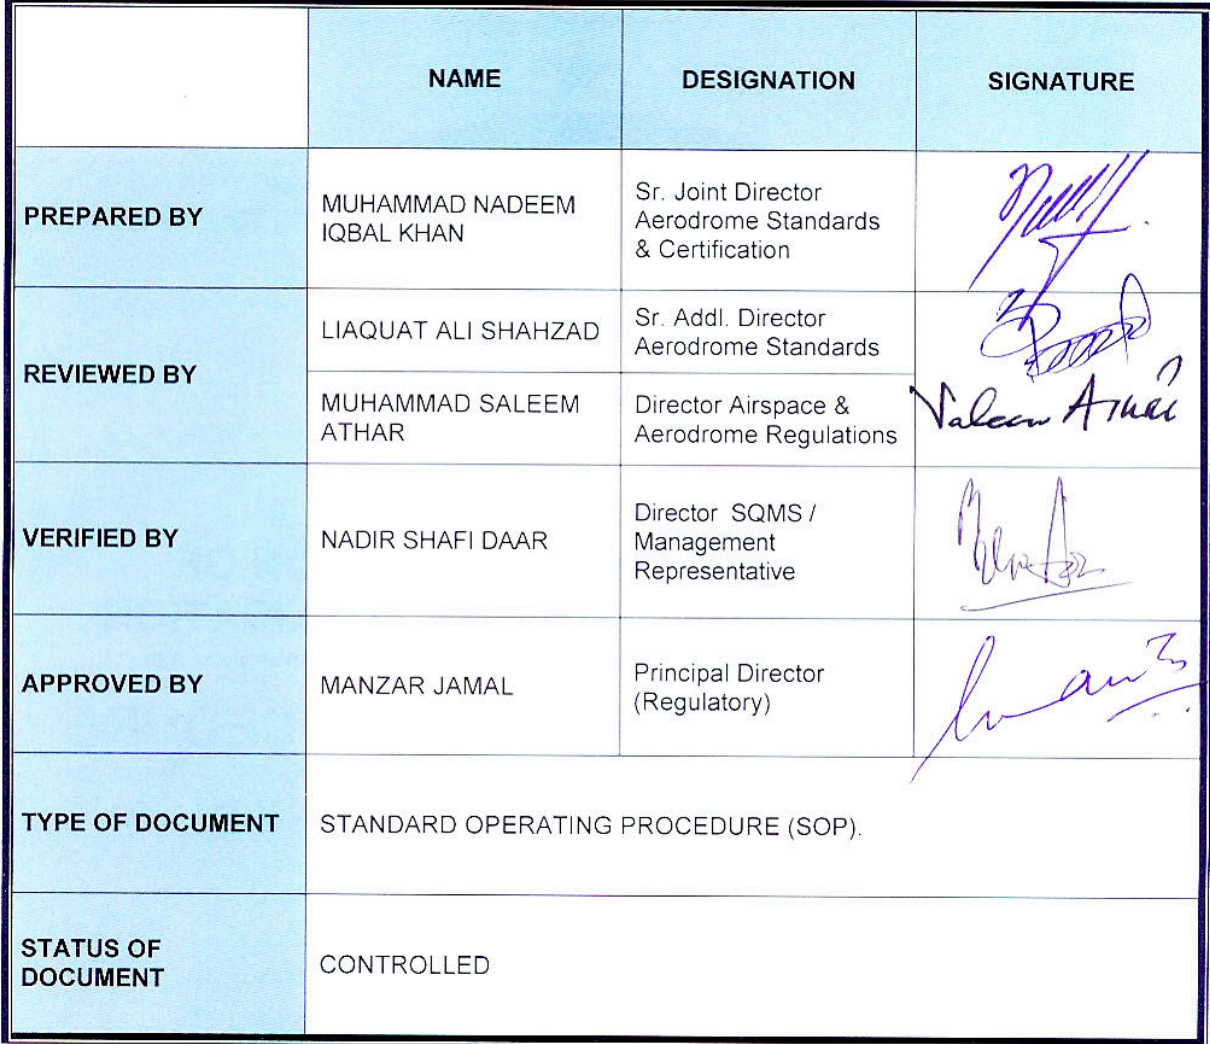 NAME DESIGNATION SIGNATURE
PREPARED BY
MUHAMMAD NADEEM
IQBAL KHAN
Sr. Joint Director
Aerodrome Standards
& Certification
REVIEWED BY
LIAQUAT ALI SHAHZAD
Sr. Addl. Director
Aerodrome Standards
MUHAMMAD SALEEM
ATHAR
Director Airspace &
Aerodrome Regulations
VERIFIED BY
NADIR SHAFI DAAR
Director SQMS /
Management
Representative
APPROVED BY
MANZAR JAMAL
Principal Director
(Regulatory)
TYPE OF DOCUMENT
STANDARD OPERATING PROCEDURE (SOP).
STATUS OF
DOCUMENT
CONTROLLED